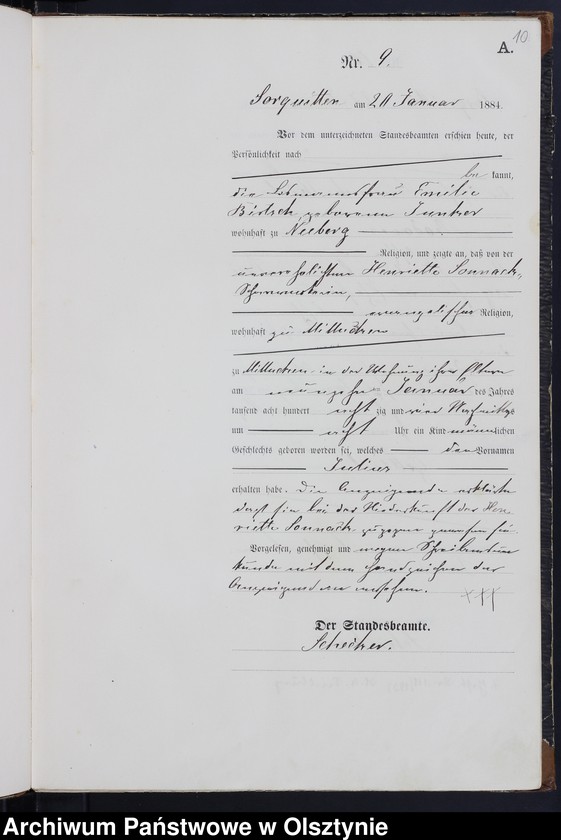 10
A.
Nr. 9.
Sorquitten am 20 Januar 1884.
Vor dem unterzeichneten Standesbeamten erschien heute, der
Persönlichkeit nach
be kannt,
die Emilie
Birtsch, geborene Junker
wohnhaft zu Neeberg
Religion, und zeigte an, daß von der
unverehelichten Henriette Sonnack,
evangelischer Religion,
wohnhaft zu
zu in der Wohnung ihrer Eltern
am neunzehn Januar des Jahres
tausend acht hundert acht zig und vier Nachmittags
um acht Uhr ein Kind männlichen
Geschlechts geboren worden sei, welches den Vornamen
Julius
erhalten habe. Die Anzeigende erklärte
daß sie bei der Niederkunft der Hen
riette Sonnack zugegen gewesen sei.
Vorgelesen, genehmigt und wegen Schreibensun
kunde mit dem Handzeichen der
Anzeigenden versehen.
+++
Der Standesbeamte.
Archiwum Państwowe w Olsztynie